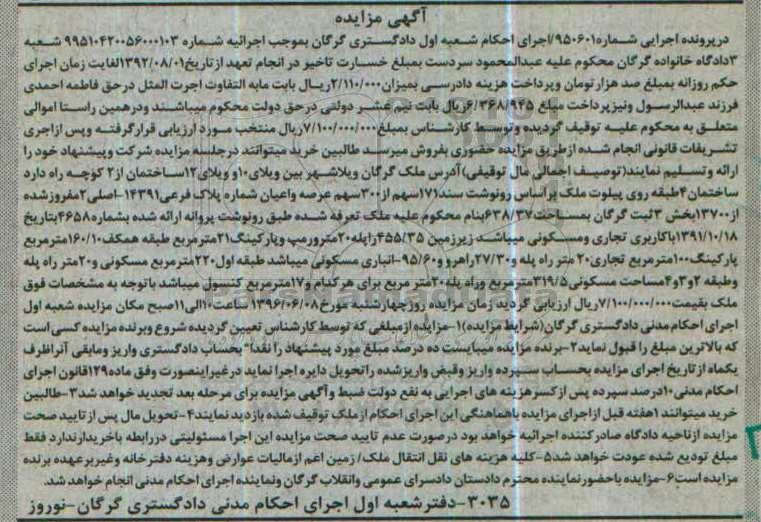 آگهی مزایده
درپرونده اجرایی شماره۹۵۰۶۰۱/اجرای احکام شعبه اول دادگستری گرگان بموجب اجرائیه شماره ۹۹۵۱۰۴۲۰۰۵۶۰۰۰۱۰۳ شعبه
۳دادگاه خانواده گرگان محکوم علیه عبدالمحمود سردست بمبلغ خسارت تاخیر در انجام تعهد از تاریخ۱۳۹۲/۰۸/۰۱لغایت زمان اجرای
حکم روزانه بمبلغ صد هزار تومان وپرداخت هزینه دادرسی بمیزان۲/۱۱۰/۰۰۰ریال بابت مابه التفاوت اجرت المثل درحق فاطمه احمدی
فرزند عبدالرسول ونیز پرداخت مبلغ ۶/۳۶۸/۹۴۵ریال بابت نیم عشر دولتی درحق دولت محکوم میباشند ودرهمین راستا اموالی
متعلق به محکوم علیه توقیف گردیده وتوسط کارشناس بمبلغ۷/۱۰۰/۰۰۰/۰۰۰ریال منتخب مورد ارزیابی قرارگرفته وپس ازاجری
تشریفات قانونی انجام شده ازطریق مزایده حضوری بفروش میرسد طالبین خرید میتوانند درجلسه مزایده شرکت وپیشنهاد خود را
ارائه وتسلیم نمایند(توصیف اجمالی مال توقیفی)آدرس ملک گرگان ویلاشهر بین ویلای۱۰و ویلای۱۲ساختمان از۲ کوچه راه دارد
ساختمان۴طبقه روی پیلوت ملک براساس رونوشت سند۱۷۱سهم از۳۰۰سهم عرصه واعیان شماره پلاک فرعی۱۴۳۹۱-اصلی۲مفروزشده
از۱۳۷۰۰بخش ۳ثبت گرگان بمساحت۶۳۸/۳۷بنام محکوم علیه ملک تعرفه شده طبق رونوشت پروانه ارائه شده بشماره۴۶۵۸بتاریخ
۱۳۹۱/۱۰/۱۸باکاربری تجاری ومسکونی میباشد زیرزمین ۴۵۵/۳۵راپله۲۰مترورمپ وپارکینگ۲۱مترمربع طبقه همکف۱۶۰/۱۰مترمربع
پارکینگ۱۰۰مترمربع تجاری۲۰ متر راه پله و۲۷/۳۰راهرو و۹۵/۶۰-انباری مسکونی میباشد طبقه اول۲۲۰مترمربع مسکونی و۲۰متر راه پله
وطبقه ۲و۳و۴مساحت مسکونی۳۱۹/۵مترمربع وراه پله۲۰متر مربع برای هرکدام و۱۷مترمربع کنسول میباشد باتوجه به مشخصات فوق
ملک بقیمت۷/۱۰۰/۰۰۰/۰۰۰ریال ارزیابی گردید زمان مزایده روزچهارشنبه مورخ۱۳۹۶/۰۶/۰۸ ساعت۱۰الی۱۱صبح مکان مزایده شعبه اول
اجرای احکام مدنی دادگستری گرگان(شرایط مزایده)۱-مزایده ازمبلغی که توسط کارشناس تعیین گردیده شروع وبرنده مزایده کسی است
که بالاترین مبلغ را قبول نماید۲-برنده مزایده میبایست ده درصد مبلغ مورد پیشنهاد را نقدا" بحساب دادگستری واریز ومابقی آنراظرف
یکماه از تاریخ اجرای مزایده بحساب سپرده واریز وقبض واریزشده راتحویل دایره اجرا نماید درغیراینصورت وفق ماده۱۲۹قانون اجرای
احکام مدنی۱۰درصد سپرده پس ازکسرهزینه های اجرایی به نفع دولت ضبط وآگهی مزایده برای مرحله بعد تجدید خواهد شد۳-طالبین
خرید میتوانند ۱هفته قبل ازاجرای مزایده باهماهنگی این اجرای احکام ازملک توقیف شده بازدید نمایند۴-تحویل مال پس از تایید صحت
مزایده ازناحیه دادگاه صادرکننده اجرائیه خواهد بود درصورت عدم تایید صحت مزایده این اجرا مسئولیتی دررابطه باخریدارندارد فقط
مبلغ تودیع شده عودت خواهد شد۵-کلیه هزینه های نقل انتقال ملک/ زمین اعم ازمالیات عوارض وهزینه دفترخانه وغیربرعهده برنده
مزایده است۶-مزایده باحضورنماینده محترم دادستان دادسرای عمومی وانقلاب گرگان ونماینده اجرای احکام مدنی انجام خواهد شد.
۳۰۳۵-دفترشعبه اول اجرای احکام مدنی دادگستری گرگان-نوروز